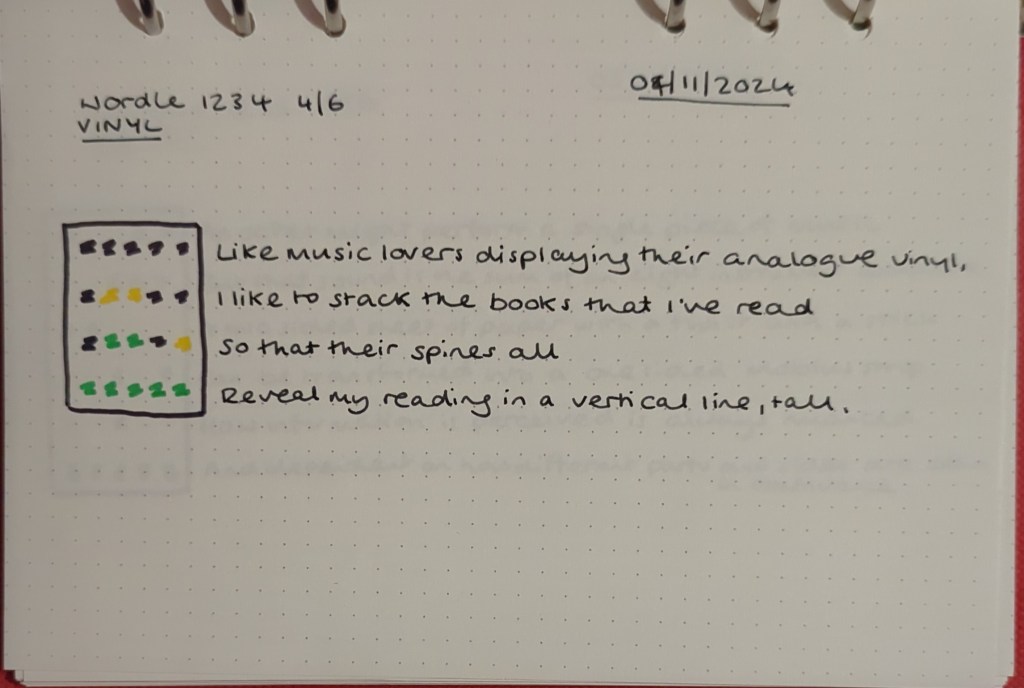 Wordle 1234 4/6
04/11/2024
VINYL
Like music lovers displaying their analogue vinyl,
I like to stack the books that I've read
So that their spines all
Reveal my reading in a vertical line, tall.